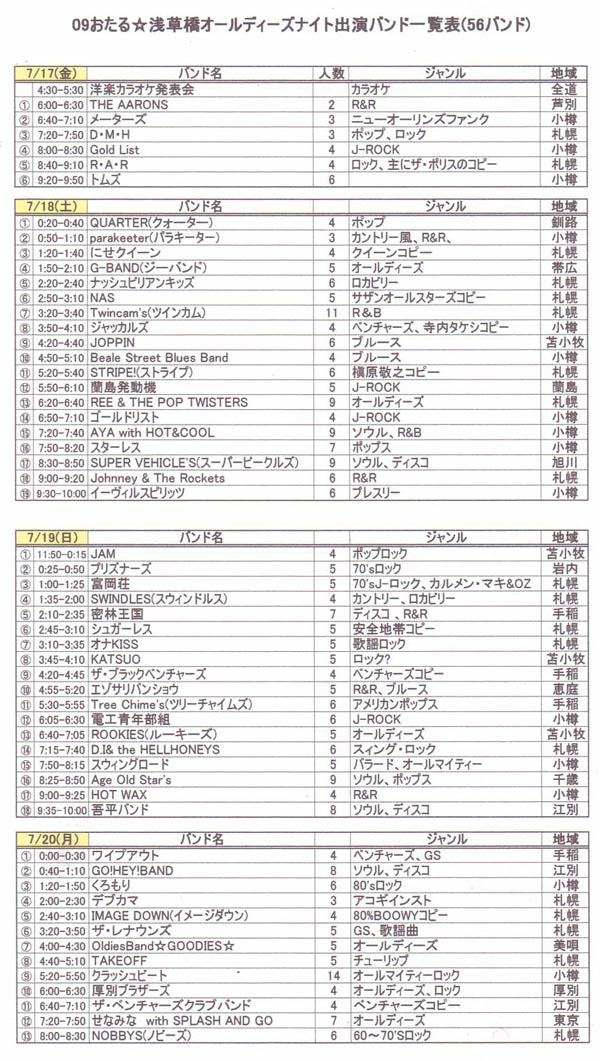 09おたる☆浅草橋オールディーズナイト出演バンド一覧表(56バンド)
7/17(金) バンド名 人数 ジャンル 地域
4:30-5:30 洋楽カラオケ発表会 カラオケ 全道
① 6:00-6:30 THE AARONS 2 R&R 芦別
② 6:40-7:10 メーターズ 3 ニューオーリンズファンク 小樽
③ 7:20-7:50 D・M・H 3 ポップ、ロック 札幌
④ 8:00-8:30 Gold List 4 J-ROCK 小樽
⑤ 8:40-9:10 R・A・R 4 ロック、主にザ・ポリスのコピー 札幌
⑥ 9:20-9:50 トムズ 6 小樽
7/18(土) バンド名 ジャンル 地域
① 0:20-0:40 QUARTER(クォーター) 4 ポップ 釧路
② 0:50-1:10 parakeeter(パラキーター) 3 カントリー風、R&R、 小樽
③ 1:20-1:40 にせクイーン 4 クイーンコピー 札幌
④ 1:50-2:10 G-BAND(ジーバンド) 5 オールディーズ 帯広
⑤ 2:20-2:40 ナッシュビリアンキッズ 6 ロカビリー 札幌
⑥ 2:50-3:10 NAS 5 サザンオールスターズコピー 札幌
⑦ 3:20-3:40 Twincam's(ツインカム) 11 R&B 札幌
⑧ 3:50-4:10 ジャッカルズ 4 ベンチャーズ、寺内タケシコピー 小樽
⑨ 4:20-4:40 JOPPIN 6 ブルース 苫小牧
⑩ 4:50-5:10 Beale Street Blues Band 4 ブルース 小樽
⑪ 5:20-5:40 STRIPE!(ストライプ) 6 槇原敬之コピー 札幌
⑫ 5:50-6:10 蘭島発動機 5 J-ROCK 蘭島
⑬ 6:20-6:40 REE & THE POP TWISTERS 9 オールディーズ 札幌
⑭ 6:50-7:10 ゴールドリスト 4 J-ROCK 小樽
⑮ 7:20-7:40 AYA with HOT&COOL 9 ソウル、R&B 小樽
⑯ 7:50-8:20 スターレス 7 ポップス 小樽
⑰ 8:30-8:50 SUPER VEHICLE'S(スーパービークルズ) 9 ソウル、ディスコ 旭川
⑱ 9:00-9:20 Johnney & The Rockets 6 R&R 札幌
⑲ 9:30-10:00 イーヴィルスピリッツ 6 プレスリー 小樽
7/19(日) バンド名 ジャンル 地域
① 11:50-0:15 JAM 4 ポップロック 苫小牧
② 0:25-0:50 プリズナーズ 5 70'sロック 岩内
③ 1:00-1:25 富岡荘 5 70'sJ-ロック、カルメン・マキ&OZ 札幌
④ 1:35-2:00 SWINDLES(スウィンドルス) 4 カントリー、ロカビリー 札幌
⑤ 2:10-2:35 密林王国 7 ディスコ 、R&R 手稲
⑥ 2:45-3:10 シュガーレス 5 安全地帯コピー 札幌
⑦ 3:10-3:35 オナKISS 5 歌謡ロック 札幌
⑧ 3:45-4:10 KATSUO 5 ロック? 苫小牧
⑨ 4:20-4:45 ザ・ブラックベンチャーズ 4 ベンチャーズコピー 手稲
⑩ 4:55-5:20 エゾサリバンショウ 5 R&R、ブルース 恵庭
⑪ 5:30-5:55 Tree Chime's(ツリーチャイムズ) 6 アメリカンポップス 手稲
⑫ 6:05-6:30 電工青年部組 6 J-ROCK 小樽
⑬ 6:40-7:05 ROOKIES(ルーキーズ) 5 オールディーズ 苫小牧
⑭ 7:15-7:40 D.I& the HELLHONEYS 6 スィング・ロック 札幌
⑮ 7:50-8:15 スウィングロード 5 バラード、オールマイティー 小樽
⑯ 8:25-8:50 Age Old Star's 9 ソウル、ポップス 千歳
⑰ 9:00-9:25 HOT WAX 4 R&R 小樽
⑱ 9:35-10:00 吾平バンド 8 ソウル、ディスコ 江別
7/20(月) バンド名 ジャンル 地域
① 0:00-0:30 ワイプアウト 4 ベンチャーズ、GS 手稲
② 0:40-1:10 GO!HEY!BAND 8 ソウル、ディスコ 江別
③ 1:20-1:50 くろもり 6 80'sロック 小樽
④ 2:00-2:30 デブカマ 3 アコギインスト 札幌
⑤ 2:40-3:10 IMAGE DOWN(イメージダウン) 4 80%BOOWYコピー 札幌
⑥ 3:20-3:50 ザ・レナウンズ 5 GS、歌謡曲 札幌
⑦ 4:00-4:30 OldiesBand☆GOODIES☆ 5 オールディーズ 美唄
⑧ 4:40-5:10 TAKEOFF 5 チューリップ 札幌
⑨ 5:20-5:50 クラッシュビート 14 オールマイティーロック 小樽
⑩ 6:00-6:30 厚別ブラザーズ 4 オールディーズ、ロック 厚別
⑪ 6:40-7:10 ザ・ベンチャーズクラブバンド 4 ベンチャーズコピー 江別
⑫ 7:20-7:50 せなみな with SPLASH AND GO 7 オールディーズ 東京
⑬ 8:00-8:30 NOBBYS(ノビーズ) 6 60～70'Sロック 札幌